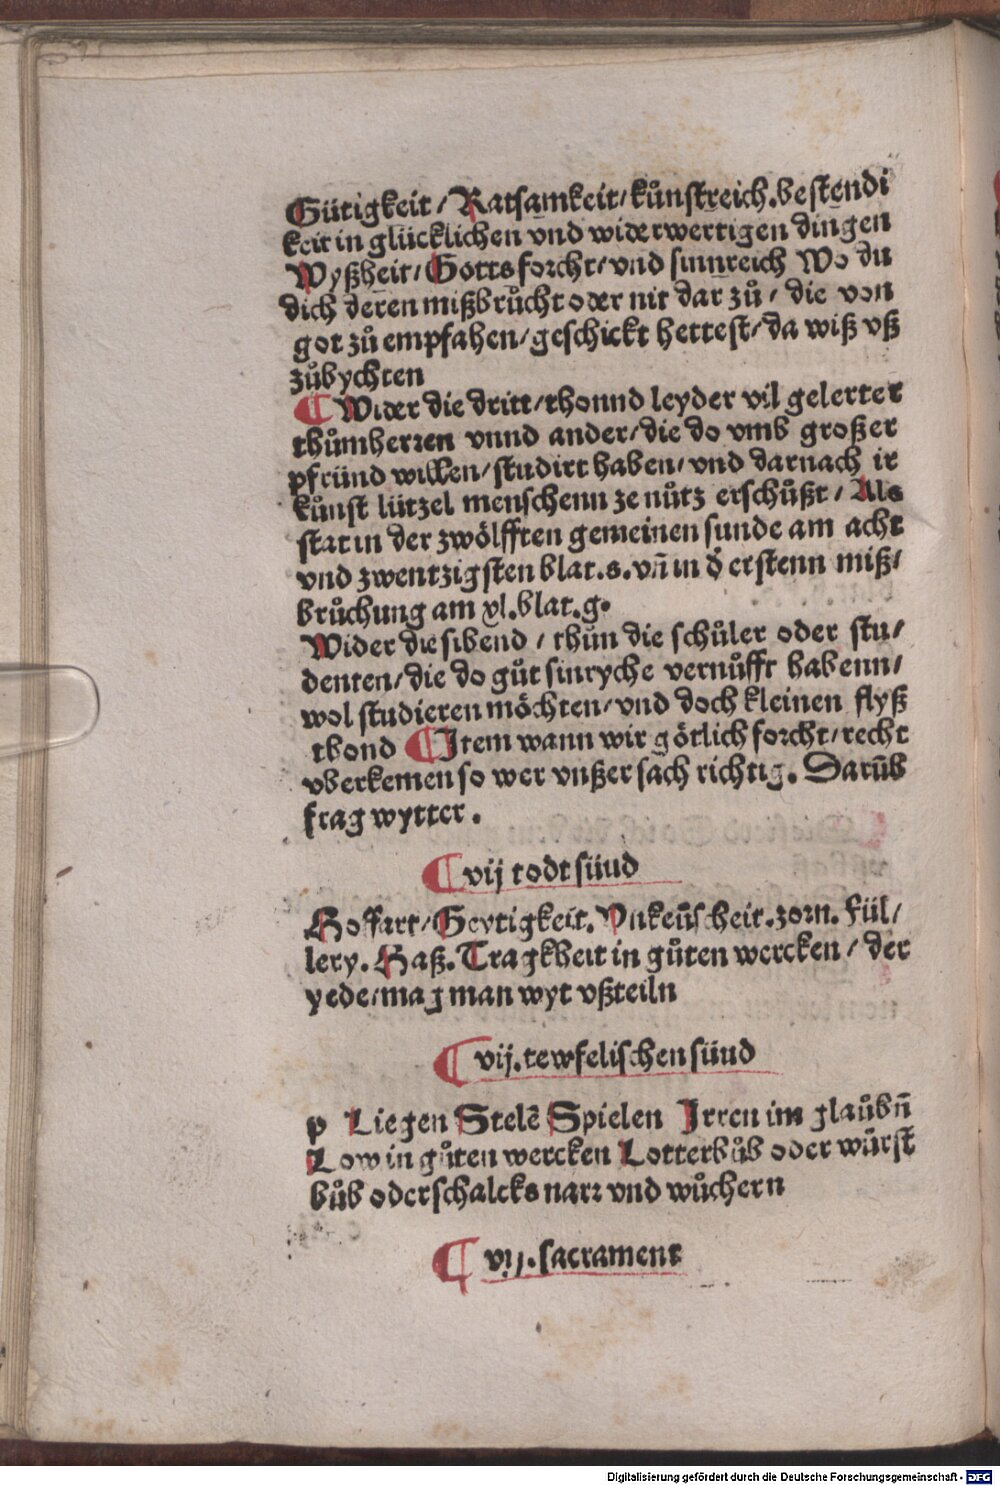 Gütigkeit / Ratsamkeit / kůnstreich. bestendi
keit in glücklichen vnd widerwertigen dingen
Wyßheit / Gottsforcht / vnd sinnreich Wo du
dich deren mißbrůcht oder nit dar zů / die von
got zů empfahen / geschickt hettest / da wiß vß
zůbychten
¶ Wider die dritt / thonnd leyder vil gelerter
thůmherren vnnd ander / die do vmb großer
pfründ willen / studirt haben / vnd darnach ir
kůnst lützel menschenn ze nůtz erschůßt / Als
stat in der zwölfften gemeinen sunde am acht
vnd zwentzigsten blat. s. vn̄ in d̄ erstenn miß /
brůchung am xl. blat. g.
Wider die sibend / thůn die schůler oder stu /
denten / die do gůt sinryche vernůfft habenn /
wol studieren möchten / vnd doch kleinen flyß
thond ¶ Item wann wir götlich forcht / recht
vberkemen so wer vnßer sach richtig. Darūb
frag wytter.
¶ vij todt sünd
Hoffart / Geytigkeit. Vnkeüscheit. zorn. Fül /
lery. Haß. Tragkheit in gůten wercken / der
yede / mag man wyt vßteiln
¶ vij. tewfelischen sünd
p Liegen Stelē Spielen Irren im glaůbn̄
Low in gůten wercken Lotterbůb oder wůrst
bůb oder schalcks narr vnd wůchern
¶ vij. sacrament
Digitalisierung gefördert durch die Deutsche Forschungsgemeinschaft - DFG